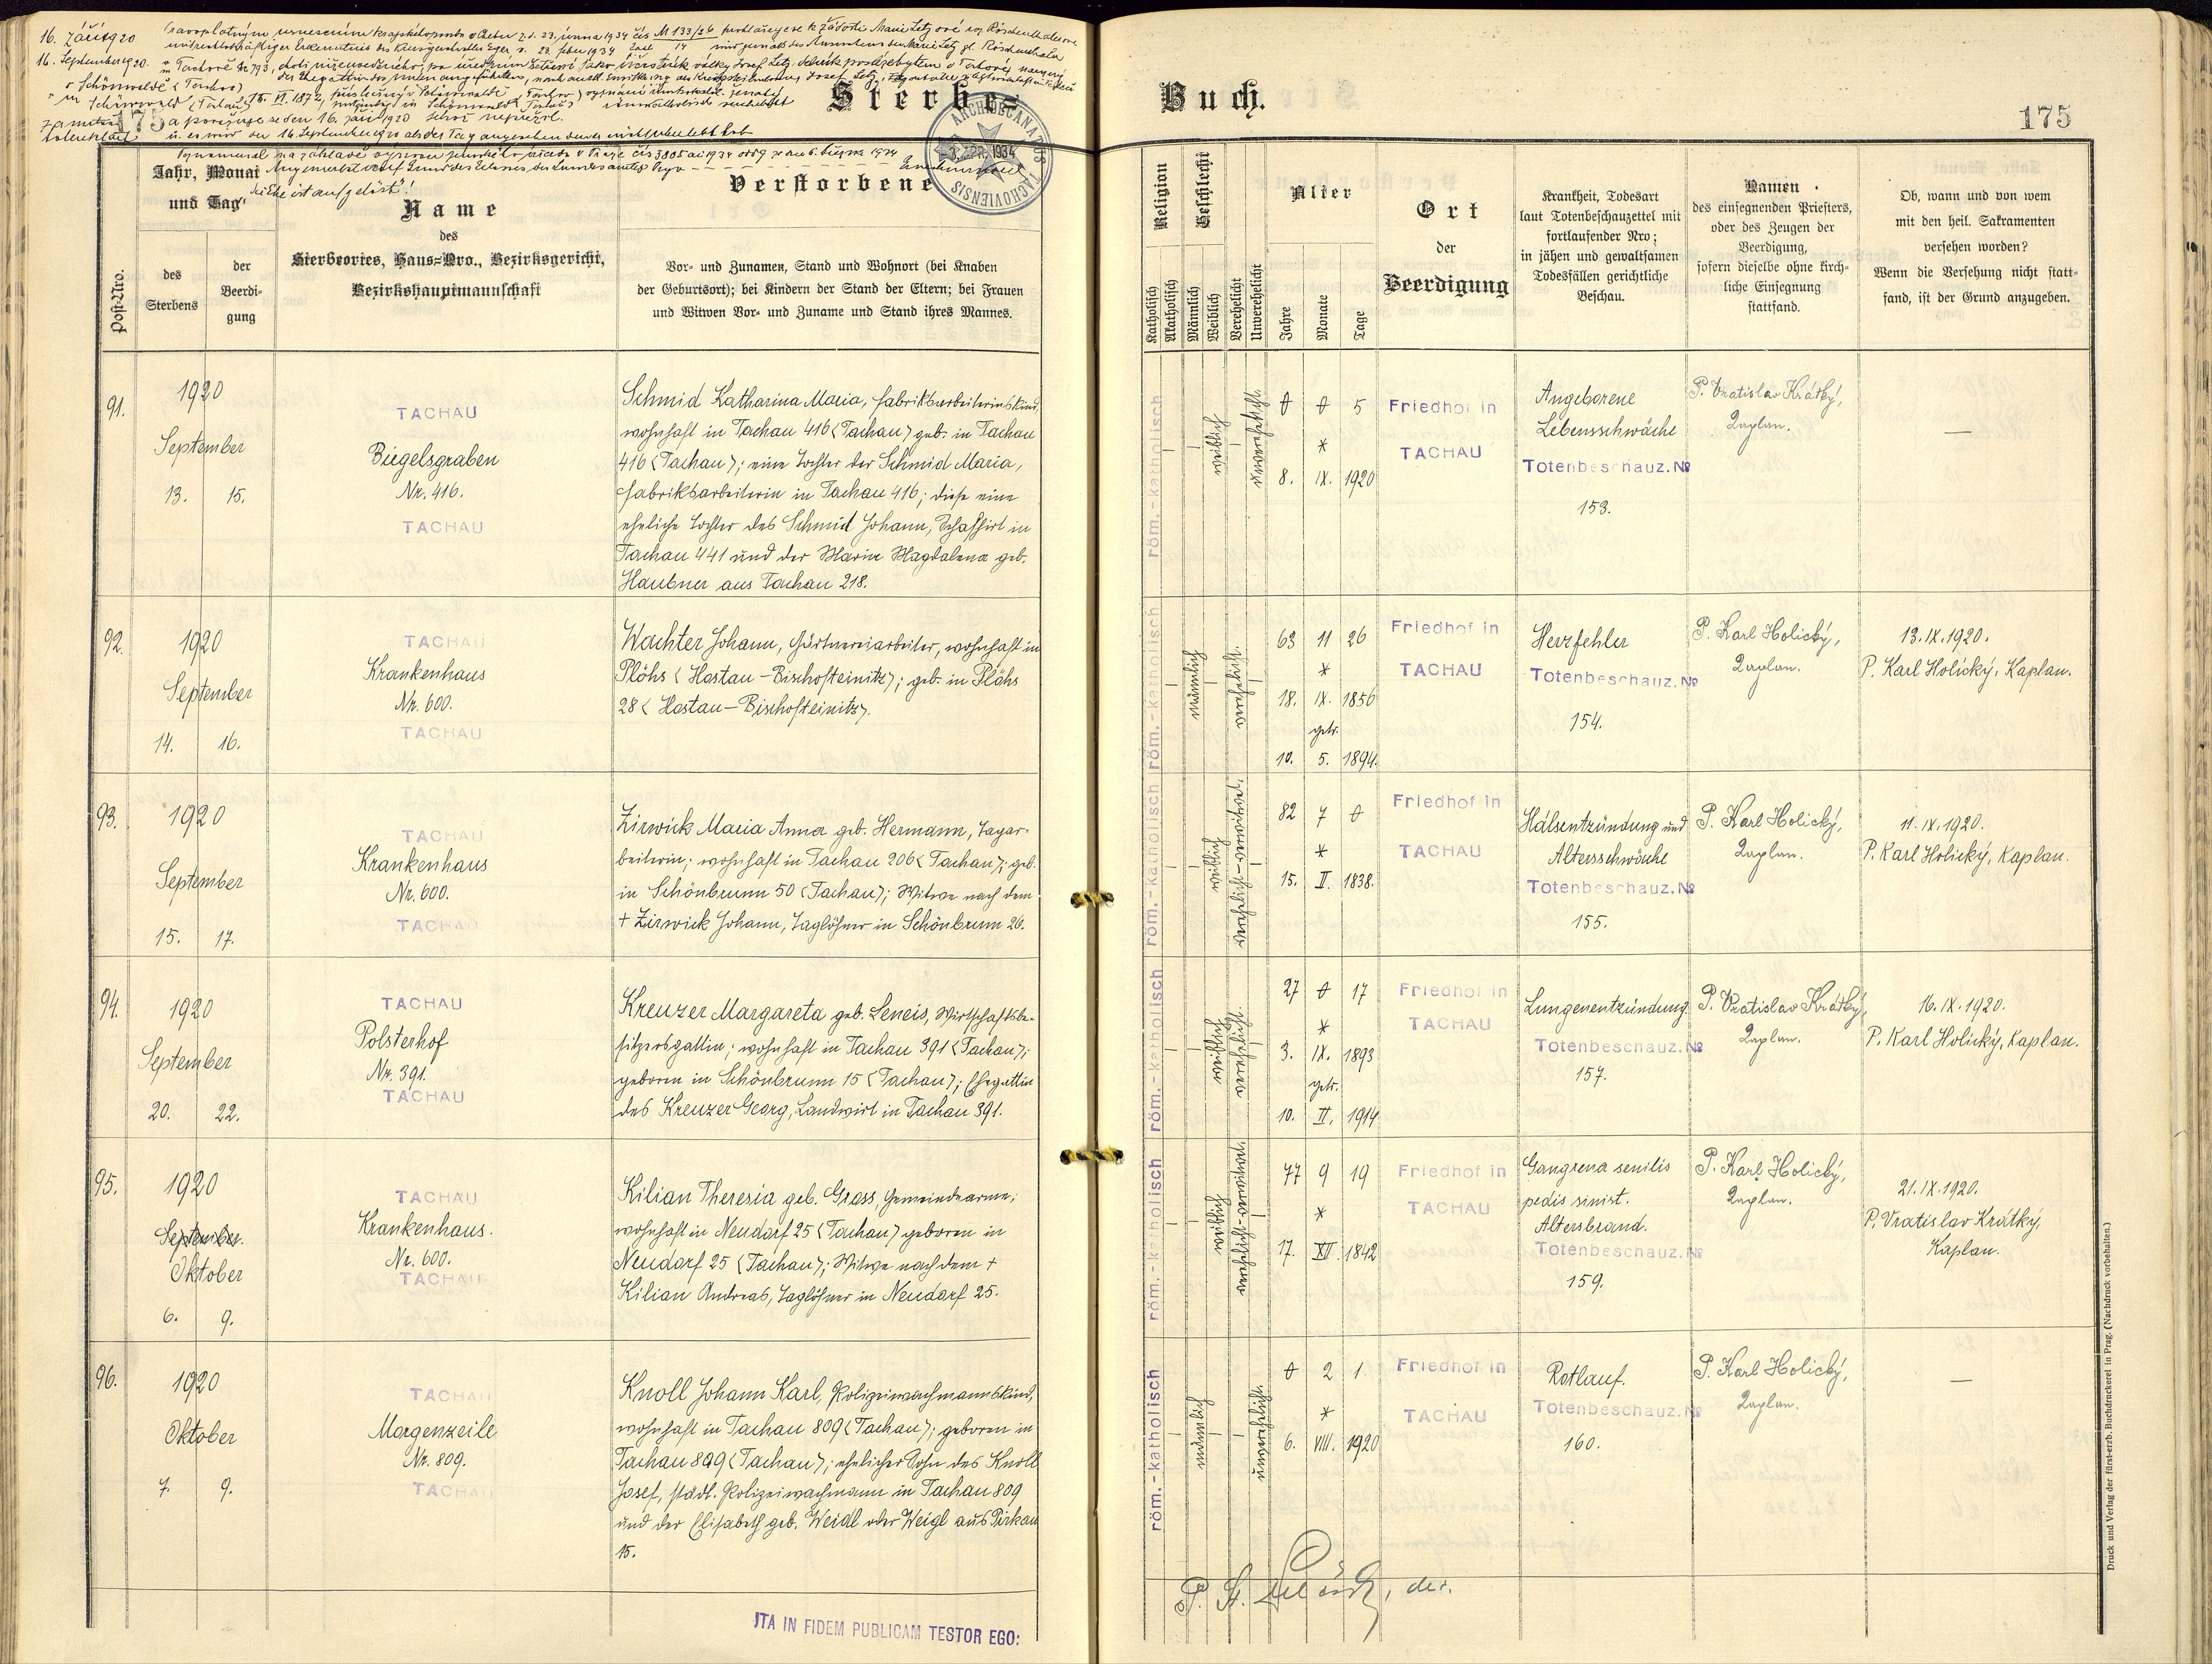 16. září 1920
16. September 1920.
Sterbe=
Buch.
175
175
ARCHIDECANATUS TACHOVIENSIS
3. APR. 1934
die Ehe ist aufgelöst!
Post-Nro.
Jahr, Monat
und Tag
des
Sterbens
der
Beerdi-
gung
Name
des
Sterbeortes, Haus-Nro., Bezirksgericht,
Bezirkshauptmannschaft
Verstorbene
Vor- und Zunamen, Stand und Wohnort (bei Knaben
der Geburtsort); bei Kindern der Stand der Eltern; bei Frauen
und Witwen Vor- und Zuname und Stand ihres Mannes.
Religion
Katholisch
Akatholisch
Geschlecht
Männlich
Weiblich
Verehelicht
Unverehelicht
Alter
Jahre
Monate
Tage
Ort
der
Beerdigung
Krankheit, Todesart
laut Totenbeschauzettel mit
fortlaufender Nro;
in jähen und gewaltsamen
Todesfällen gerichtliche
Beschau.
Namen
des einsegnenden Priesters,
oder des Zeugen der
Beerdigung,
sofern dieselbe ohne kirch-
liche Einsegnung
stattfand.
Ob, wann und von wem
mit den heil. Sakramenten
versehen worden?
Wenn die Versehung nicht statt-
fand, ist der Grund anzugeben.
91.
1920
September
13. 15.
TACHAU
Biegelsgraben
Nr. 416.
TACHAU
Schmid Katharina Maria, Fabriksarbeiterinskind,
wohnhaft in Tachau 416 (Tachau) geb. in Tachau
416 (Tachau); eine Tochter der Schmid Maria,
Fabriksarbeiterin in Tachau 416; diese eine
eheliche Tochter des Schmid Johann, Schafhirt in
Tachau 441 und der Marie Magdalena geb.
Haubner aus Tachau 218.
röm.-katholisch
weiblich
unverehelicht.
0 0 5
*
8. IX. 1920
Friedhof in
TACHAU
Angeborene
Lebensschwäche
Totenbeschauz. No
153.
P. Vratislav Krátký,
Kaplan.
—
92.
1920
September
14. 16.
TACHAU
Krankenhaus
Nr. 600.
TACHAU
Wachter Johann, Gärtnereiarbeiter, wohnhaft in
Plöhs (Hostau-Bischofteinitz); geb. in Plöhs
28 (Hostau-Bischofteinitz).
röm.-katholisch
männlich
verehelicht.
63 11 26
*
18. IX. 1856
getr.
10. 5. 1894.
Friedhof in
TACHAU
Herzfehler
Totenbeschauz. No
154.
P. Karl Holický,
Kaplan.
13. IX. 1920.
P. Karl Holický, Kaplan.
93.
1920
September
15. 17.
TACHAU
Krankenhaus
Nr. 600.
TACHAU
Zirwick Maria Anna geb. Hermann, Tagar-
beiterin; wohnhaft in Tachau 206 (Tachau); geb.
in Schönbrunn 50 (Tachau); Witwe nach dem
+ Zirwick Johann, Taglöhner in Schönbrunn 26.
röm.-katholisch
weiblich
verehelicht-verwitwet.
82 7 0
*
15. II. 1838.
Friedhof in
TACHAU
Halsentzündung und
Altersschwäche
Totenbeschauz. No
155.
P. Karl Holický,
Kaplan.
11. IX. 1920.
P. Karl Holický, Kaplan.
94.
1920
September
20. 22.
TACHAU
Polsterhof
Nr. 391.
TACHAU
Kreuzer Margareta geb. Leneis, Wirtschaftsbe-
sitzersgattin; wohnhaft in Tachau 391 (Tachau);
geboren in Schönbrunn 15 (Tachau); Ehegattin
des Kreuzer Georg, Landwirt in Tachau 391.
röm.-katholisch
weiblich
verehelicht.
27 0 17
*
3. IX. 1893
getr.
10. II. 1914
Friedhof in
TACHAU
Lungenentzündung
Totenbeschauz. No
157.
P. Vratislav Krátký,
Kaplan.
16. IX. 1920.
P. Karl Holický, Kaplan.
95.
1920
September.
Oktober
6. 9.
TACHAU
Krankenhaus.
Nr. 600.
TACHAU
Kilian Theresia geb. Grass, Gemeindearme;
wohnhaft in Neudorf 25 (Tachau) geboren in
Neudorf 25 (Tachau); Witwe nach dem +
Kilian Andreas, Taglöhner in Neudorf 25.
röm.-katholisch
weiblich
verehelicht-verwitwet.
77 9 19
*
17. XII. 1842
Friedhof in
TACHAU
Gangrena senilis
pedis sinist.
Altersbrand.
Totenbeschauz. No
159.
P. Karl Holický,
Kaplan.
21. IX. 1920.
P. Vratislav Krátký,
Kaplan.
96.
1920
Oktober
7. 9.
TACHAU
Morgenzeile
Nr. 809.
TACHAU
Knoll Johann Karl, Polizeiwachmannskind,
wohnhaft in Tachau 809 (Tachau); geboren in
Tachau 809 (Tachau); ehelicher Sohn des Knoll
Josef, städt. Polizeiwachmann in Tachau 809
und der Elisabeth geb. Weidl oder Weigl aus Pirkau
15.
röm.-katholisch
männlich
unverehelicht.
0 2 1
*
6. VIII. 1920
Friedhof in
TACHAU
Rotlauf.
Totenbeschauz. No
160.
P. Karl Holický,
Kaplan.
—
ITA IN FIDEM PUBLICAM TESTOR EGO:
Druck und Verlag der fürst-erzb. Buchdruckerei in Prag. (Nachdruck vorbehalten.)